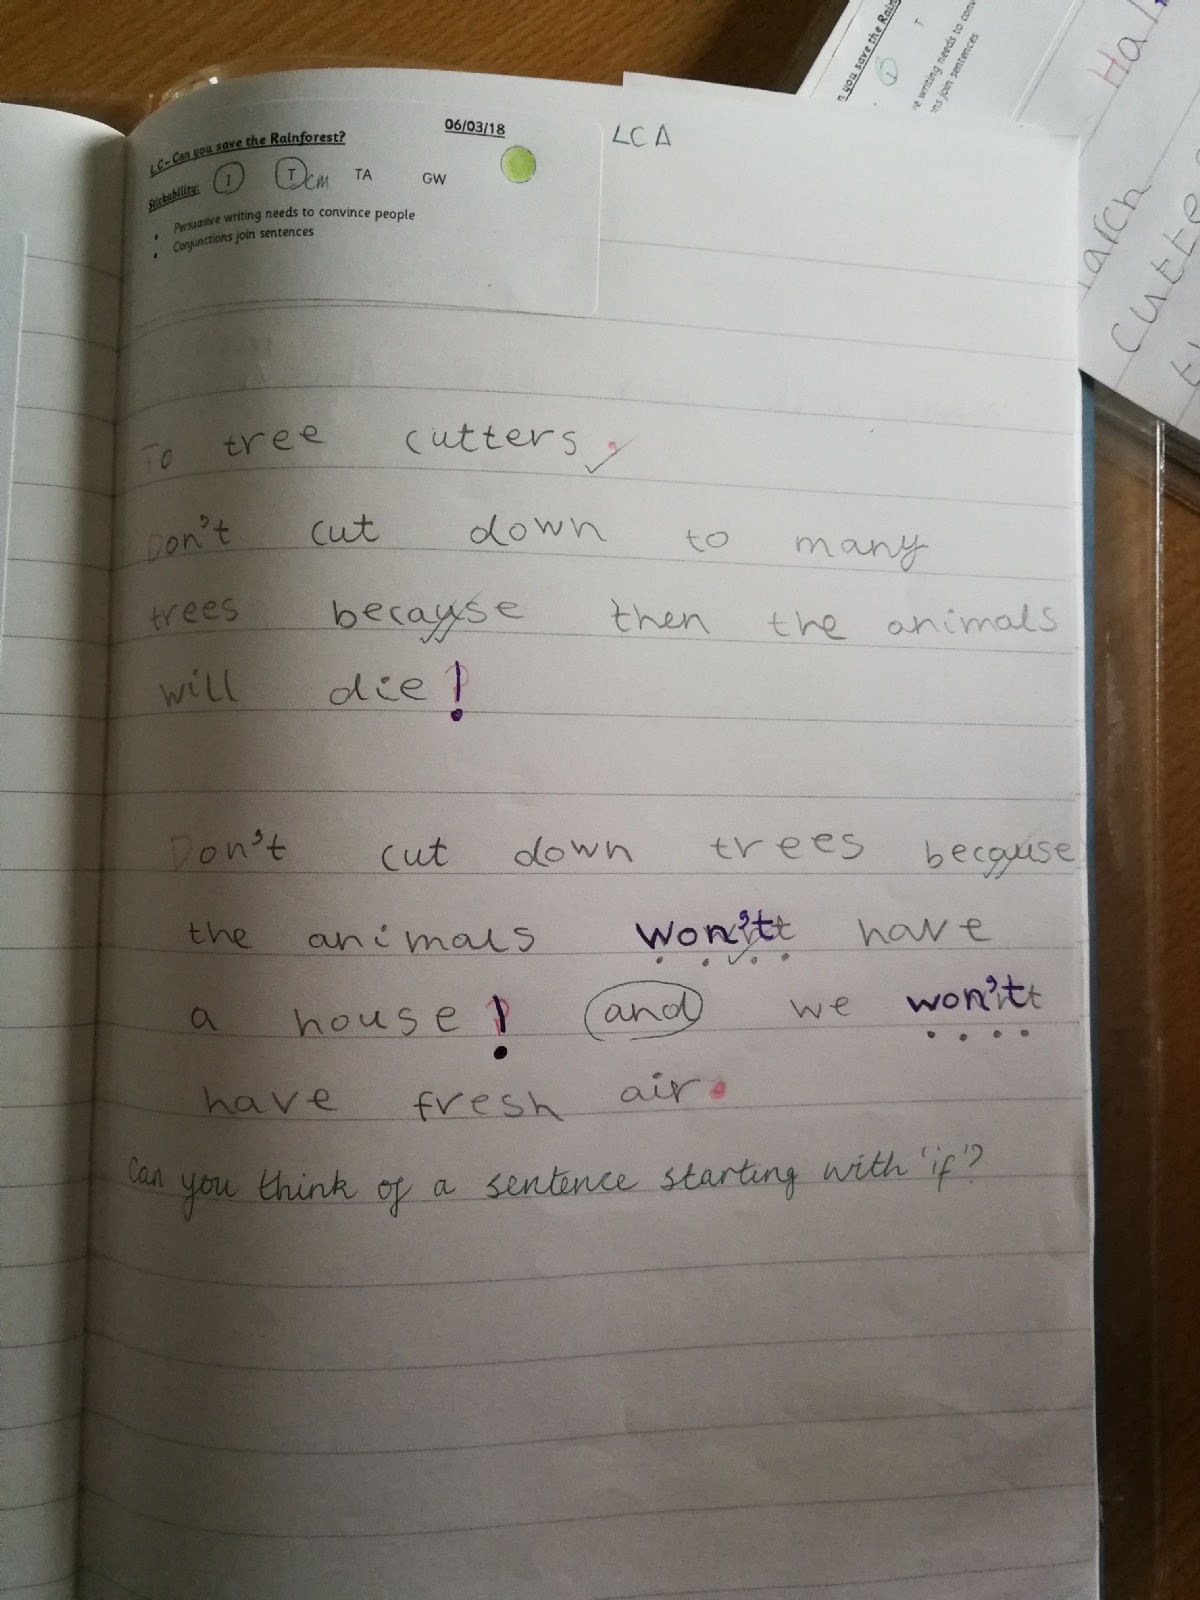 L.C - Can you save the Rainforest?
06/03/18
LCA
Stickability: I T cm TA GW
• Persuasive writing needs to convince people
• Conjunctions join sentences
To tree cutters,
Don't cut down to many
trees because then the animals
will die!
Don't cut down trees because
the animals won't have
a house! and we won't
have fresh air.
Can you think of a sentence starting with 'if'?
n you save the Rain
T
i
e writing needs to conv
ns join sentences
Hal
arch
cutte